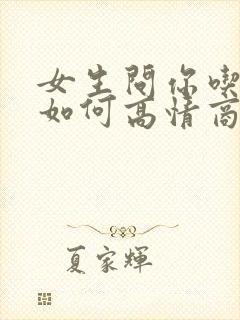 女生問你喫
如何高情商
夏家輝